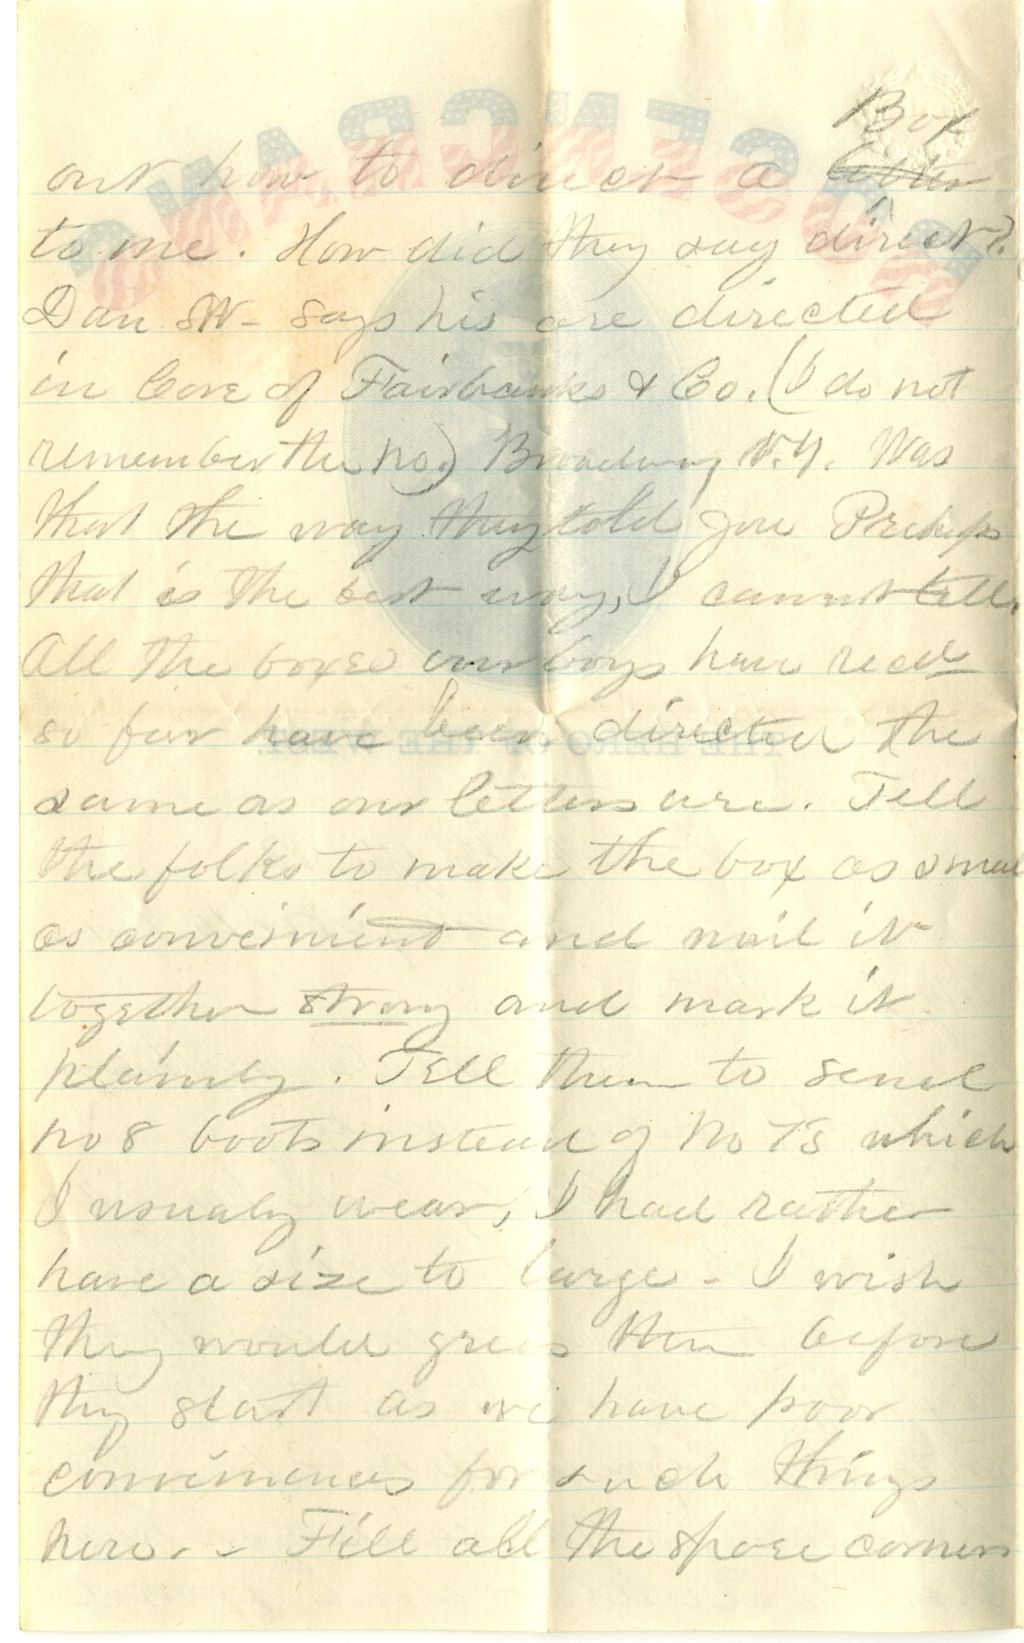 Box
out how to direct a letter
to me. How did they say direct?
Dan W- says his are directed
in Care of Fairbanks & Co. (I do not
remember the No.) Broadway N.Y. Was
that the way they told you Perhaps
that is the best way, I cannot tell.
All the boxes our boys have recd
so far have been directed the
same as our letters are. Tell
the folks to make the box as small
as convenient and nail it
together strong and mark it
plainly. Tell them to send
No 8 boots instead of No 7s which
I usualy wear, I had rather
have a size to large - I wish
they would grees them before
they start as we have poor
conveniences for such things
here. - Fill all the spare corners